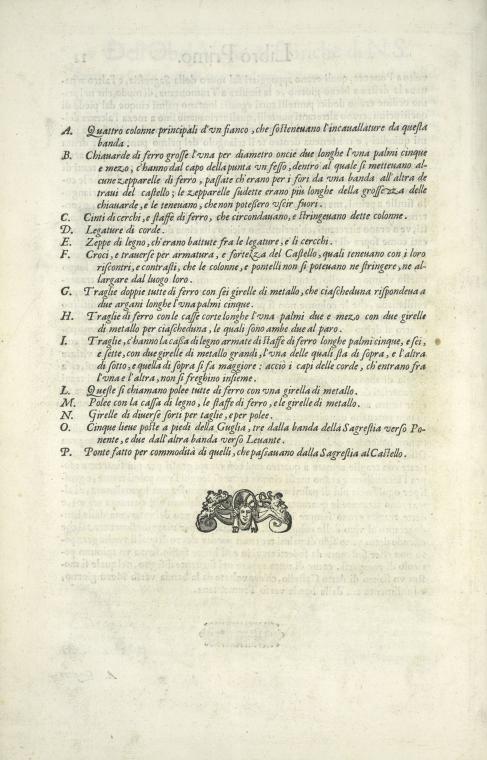 A. Quattro colonne principali d'vn fianco, che sosteneuano l'incauallature da questa
banda.
B. Chiauarde di ferro grosse l'vna per diametro oncie due longhe l'vna palmi cinque
e mezo, c'hanno dal capo della punta vn fesso, dentro al quale si metteuano al-
cune zepparelle di ferro, passate ch'erano per i fori da vna banda all'altra de
traui del castello; le zepparelle sudette erano più longhe della grossezza delle
chiauarde, e le teneuano, che non potessero vscir fuori.
C. Cinti di cerchi, e staffe di ferro, che circondauano, e stringeuano dette colonne.
D. Legature di corde.
E. Zeppe di legno, ch'erano battute fra le legature, e li cerchi.
F. Croci, e trauerse per armatura, e fortezza del Castello, quali teneuano con i loro
riscontri, e contrasti, che le colonne, e pontelli non si poteuano ne stringere, ne al-
largare dal luogo loro.
G. Traglie doppie tutte di ferro con sei girelle di metallo, che ciascheduna rispondeua a
due argani longhe l'vna palmi cinque.
H. Traglie di ferro con le casse corte longhe l'vna palmi due e mezo con due girelle
di metallo per ciascheduna, le quali sono ambe due al paro.
I. Traglie, c'hanno la cassa di legno armate di staffe di ferro longhe palmi cinque, e sei,
e sette, con due girelle di metallo grandi, l'vna delle quali sta di sopra, e l'altra
di sotto, e quella di sopra si fa maggiore: acciò i capi delle corde, ch'entrano fra
l'vna e l'altra, non si freghino insieme.
L. Queste si chiamano polee tutte di ferro con vna girella di metallo.
M. Polee con la cassa di legno, le staffe di ferro, e le girelle di metallo.
N. Girelle di diuerse sorti per taglie, e per polee.
O. Cinque lieue poste a piedi della Guglia, tre dalla banda della Sagrestia verso Po-
nente, e due dall'altra banda verso Leuante.
P. Ponte fatto per commodità di quelli, che passauano dalla Sagrestia al Castello.